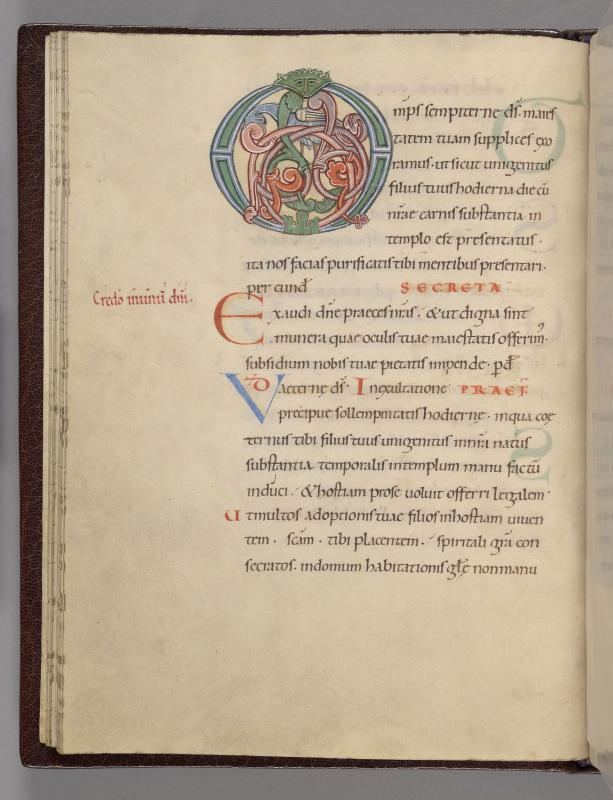 O mps sempiterne ds̄. maies
tatem tuam supplices exo
ramus. ut sicut unigenitus
filius tuus hodierna die cū
nr̄ae carnis substantia in
templo est presentatus.
ita nos facias purificatis tibi mentibus presentari.
per eund̄ SECRETA
Credo in unū dm̄.
Exaudi dn̄e praeces nr̄as. & ut digna sint
munera quae oculis tuae maiestatis offerim᷒.
subsidium nobis tuae pietatis impende. p̱d̄
VD aeterne ds̄. In exultatione PRAEF̄
precipue sollempnitatis hodierne. in qua coe
ternus tibi filius tuus unigenitus natus
substantia temporalis in templum manu factū
induci. & hostiam pro se voluit offerri legalem.
Ut multos adoptionis tuae filios in hostiam viven
tem. scām. tibi placentem. spiritali gr̄a con
secratos. in domum habitationis gl̄e non manu